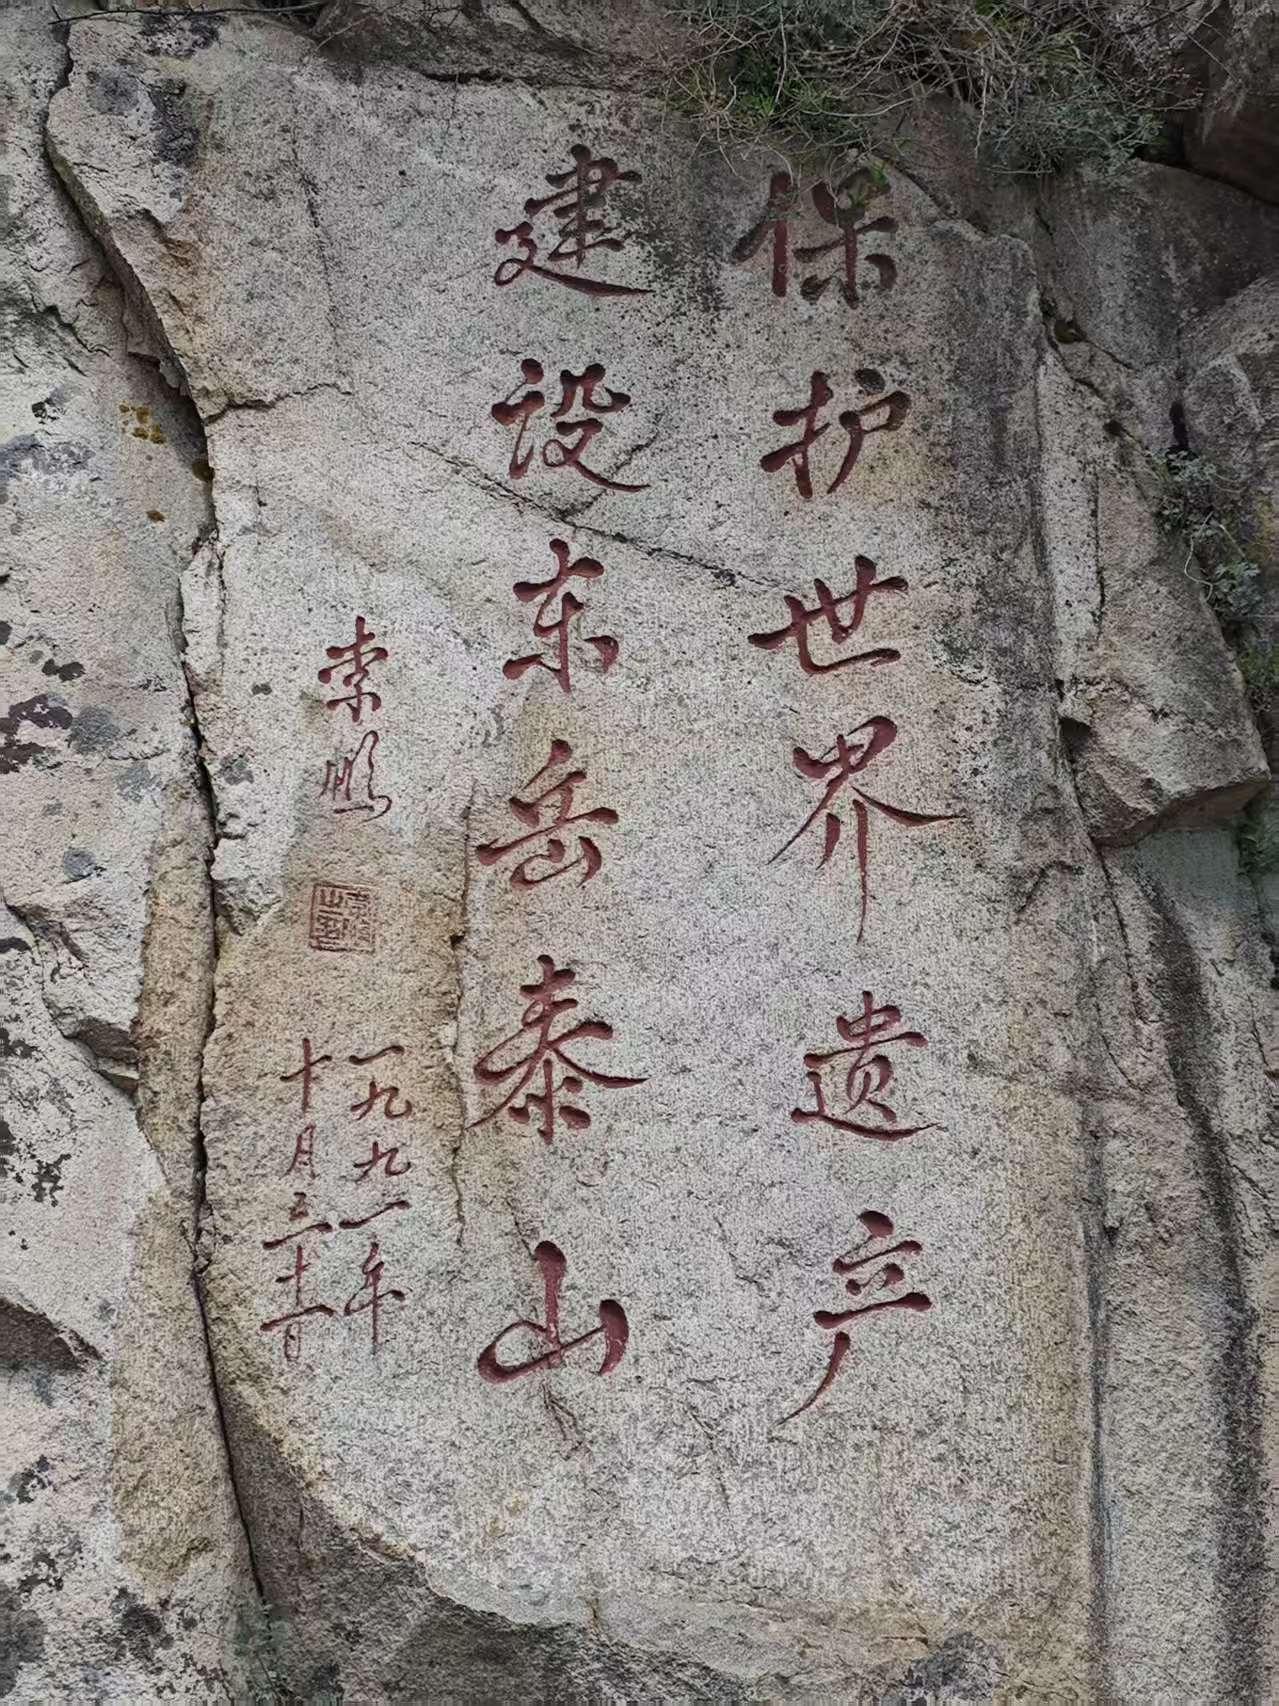 保护世界遗产
建设东岳泰山
鹏
一九九一年
十月三十一日